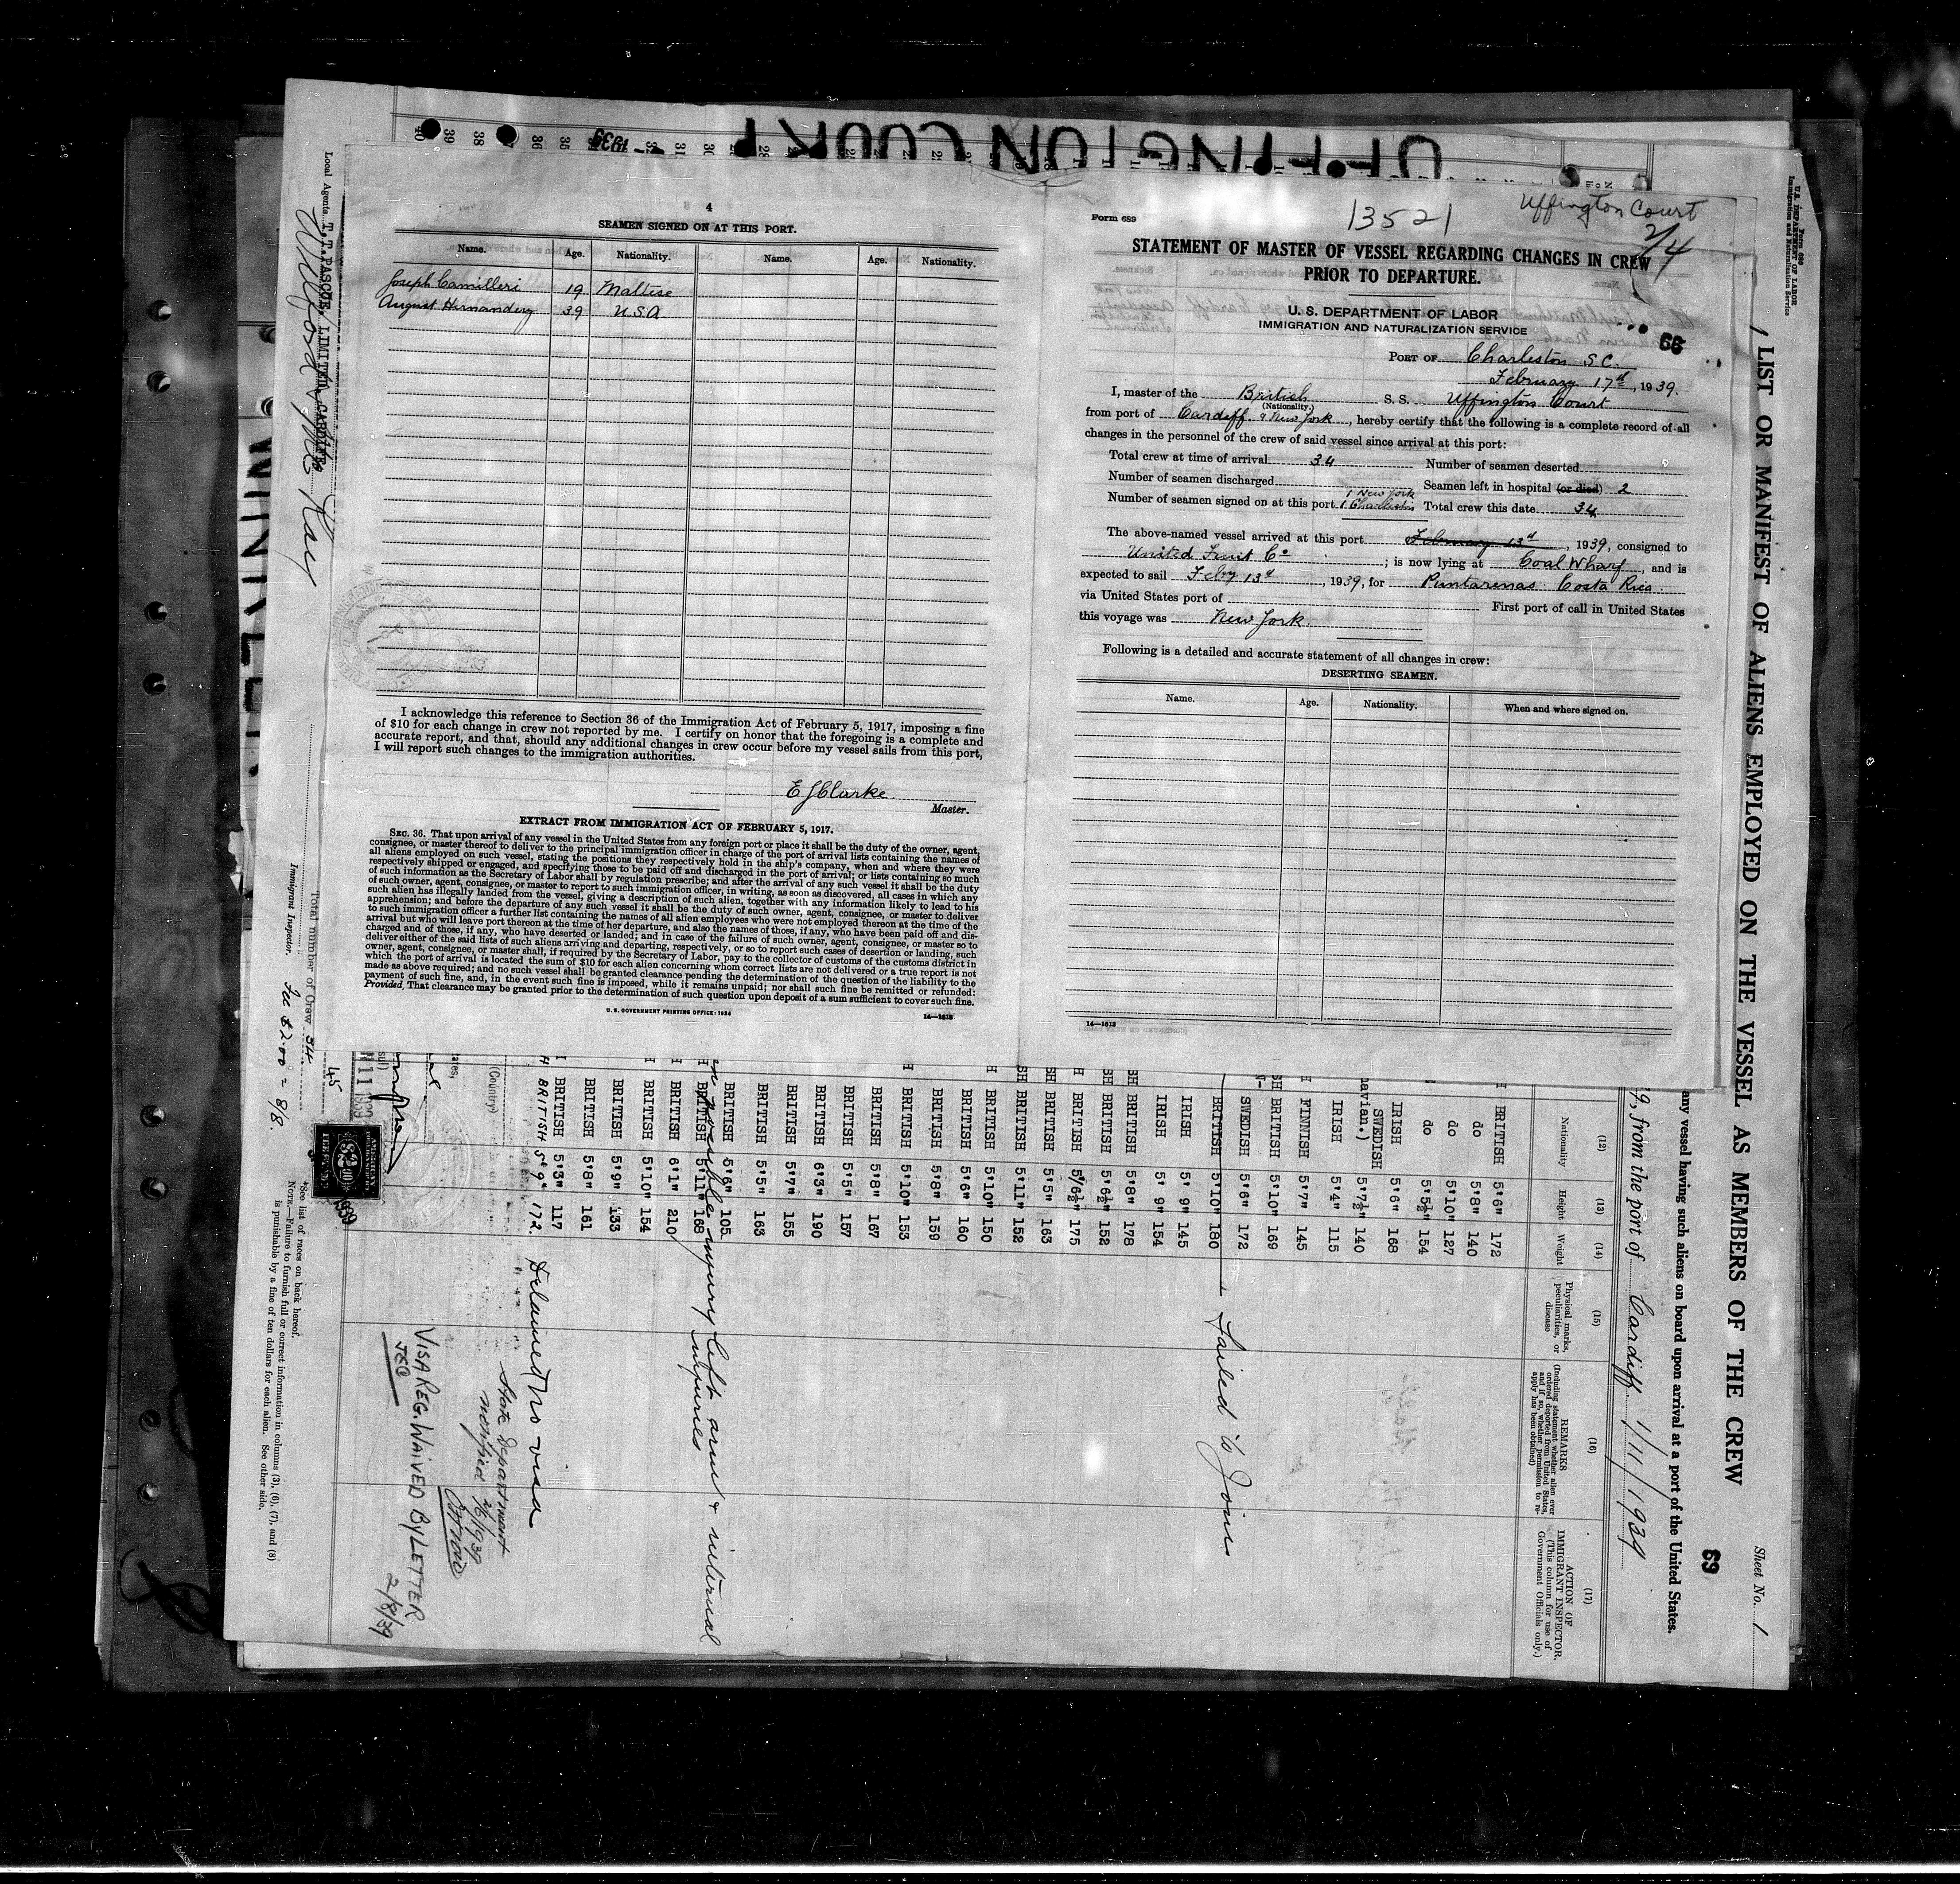 UFFINGTON COURT
4
SEAMEN SIGNED ON AT THIS PORT.
Name. Age. Nationality. Name. Age. Nationality.
Joseph Camilleri 19 Maltese
August Hernandez 39 U.S.A
I acknowledge this reference to Section 36 of the Immigration Act of February 5, 1917, imposing a fine
of $10 for each change in crew not reported by me. I certify on honor that the foregoing is a complete and
accurate report, and that, should any additional changes in crew occur before my vessel sails from this port,
I will report such changes to the immigration authorities.
E J Clarke
Master.
EXTRACT FROM IMMIGRATION ACT OF FEBRUARY 5, 1917.
SEC. 36. That upon arrival of any vessel in the United States from any foreign port or place it shall be the duty of the owner, agent,
consignee, or master thereof to deliver to the principal immigration officer in charge of the port of arrival lists containing the names of
all aliens employed on such vessel, stating the positions they respectively hold in the ship's company, when and where they were
respectively shipped or engaged, and specifying those to be paid off and discharged in the port of arrival; or lists containing so much
of such information as the Secretary of Labor shall by regulation prescribe; and after the arrival of any such vessel it shall be the duty
of such owner, agent, consignee, or master to report to such immigration officer, in writing, as soon as discovered, all cases in which any
such alien has illegally landed from the vessel, giving a description of such alien, together with any information likely to lead to his
apprehension; and before the departure of any such vessel it shall be the duty of such owner, agent, consignee, or master to deliver
to such immigration officer a further list containing the names of all alien employees who were not employed thereon at the time of the
arrival but who will leave port thereon at the time of her departure, and also the names of those, if any, who have been paid off and dis-
charged and of those, if any, who have deserted or landed; and in case of the failure of such owner, agent, consignee, or master so to
deliver either of the said lists of such aliens arriving and departing, respectively, or so to report such cases of desertion or landing, such
owner, agent, consignee, or master shall, if required by the Secretary of Labor, pay to the collector of customs of the customs district in
which the port of arrival is located the sum of $10 for each alien concerning whom correct lists are not delivered or a true report is not
made as above required; and no such vessel shall be granted clearance pending the determination of the question of the liability to the
payment of such fine, and, in the event such fine is imposed, while it remains unpaid; nor shall such fine be remitted or refunded:
Provided, That clearance may be granted prior to the determination of such question upon deposit of a sum sufficient to cover such fine.
U.S. GOVERNMENT PRINTING OFFICE: 1934 14—1613
Form 689
13521
Uffington Court
2/4
STATEMENT OF MASTER OF VESSEL REGARDING CHANGES IN CREW
PRIOR TO DEPARTURE.
U. S. DEPARTMENT OF LABOR
IMMIGRATION AND NATURALIZATION SERVICE
66
PORT OF Charleston S.C.
February 17th, 1939.
I, master of the British S. S. Uffington Court
(Nationality.)
from port of Cardiff & New York, hereby certify that the following is a complete record of all
changes in the personnel of the crew of said vessel since arrival at this port:
Total crew at time of arrival 34 Number of seamen deserted
Number of seamen discharged Seamen left in hospital (or died) 2
1 New York
Number of seamen signed on at this port 1 Charleston Total crew this date 34
The above-named vessel arrived at this port February 13th, 1939, consigned to
United Fruit Co ; is now lying at Coal Wharf, and is
expected to sail Feby 13th, 1939, for Puntarenas Costa Rica.
via United States port of First port of call in United States
this voyage was New York.
Following is a detailed and accurate statement of all changes in crew:
DESERTING SEAMEN.
Name. Age. Nationality. When and where signed on.
14—1613
Form 680
U.S. DEPARTMENT OF LABOR
Immigration and Naturalization Service
Sheet No. 1
LIST OR MANIFEST OF ALIENS EMPLOYED ON THE VESSEL AS MEMBERS OF THE CREW
69
any vessel having such aliens on board upon arrival at a port of the United States.
from the port of Cardiff 1/11/1939
(12) (13) (14) (15) (16) (17)
Nationality Height Weight Physical marks, peculiarities, or disease
REMARKS
(Including statement whether alien ever ordered deported from United States, and if so, whether permission to reapply has been obtained)
ACTION OF IMMIGRANT INSPECTOR.
(This column for use of Government Officials only.)
BRITISH 5'6" 172
do 5'8" 140
do 5'10" 127
do 5'5½" 154
IRISH 5'6" 168
SWEDISH 5'7½" 140
IRISH 5'4" 115
FINNISH 5'7" 145
BRITISH 5'10" 169
SWEDISH 5'6" 172
BRITISH 5'10" 180 Failed to Join
IRISH 5'9" 145
IRISH 5'9" 154
BRITISH 5'8" 178
BRITISH 5'6½" 152
BRITISH 5'6½" 175
BRITISH 5'5" 163
BRITISH 5'11" 152
BRITISH 5'10" 150
BRITISH 5'6" 160
BRITISH 5'8" 159
BRITISH 5'10" 153
BRITISH 5'8" 167
BRITISH 5'5" 157
BRITISH 6'3" 190
BRITISH 5'7" 155
BRITISH 5'5" 163
BRITISH 5'6" 105
BRITISH 5'11" 168
injury left arm & internal
injuries
BRITISH 6'1" 210
BRITISH 5'10" 154
BRITISH 5'9" 133
BRITISH 5'8" 161
BRITISH 5'3" 117
BRITISH 5'9" 172 Detained no visa
State Department
notified
VISA REG. WAIVED BY LETTER
2/8/39
Local Agents T.T. PASCOE, LIMITED, CARDIFF
Total number of Crew 34
Immigrant Inspector.
Fee $2.00 = 8/8.
*See list of races on back hereof.
NOTE.—Failure to furnish full or correct information in columns (3), (6), (7), and (8)
is punishable by a fine of ten dollars for each alien. See other side.